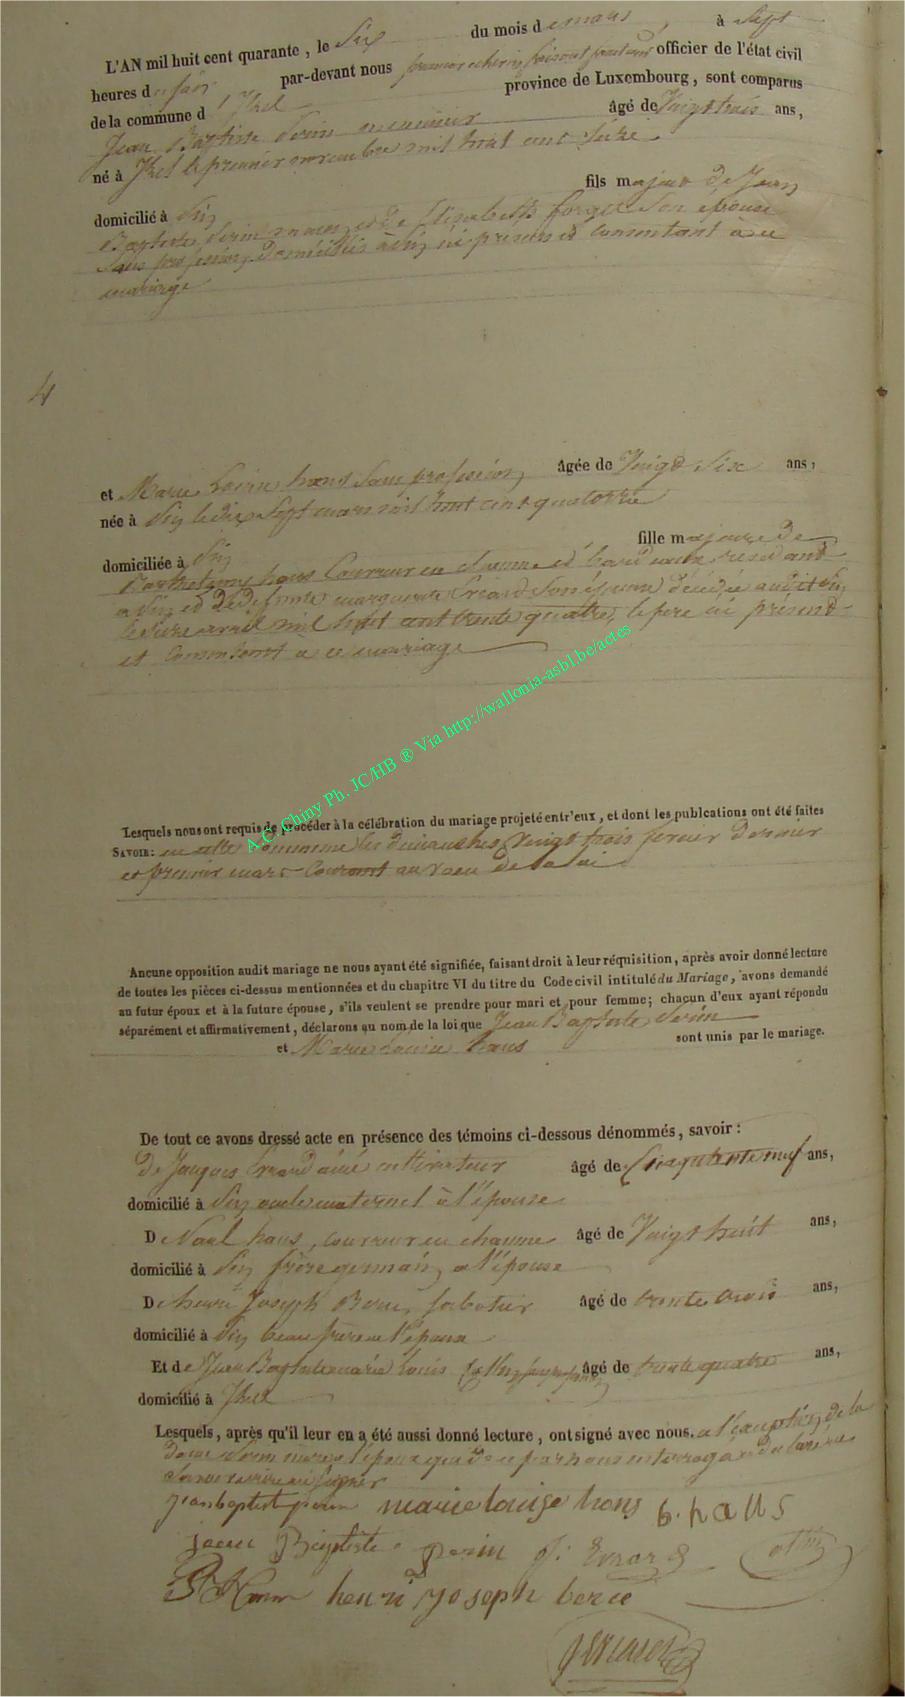 L'AN mil huit cent quarante, le Six du mois de mars, à Sept
heures du soir par-devant nous premier échevin faisant officier de l'état civil
de la commune d'Izel province de Luxembourg, sont comparus
Jean Baptiste âgé de Vingt trois ans,
né à Izel le premier novembre mil huit cent Seize
fils majeur de Jean
domicilié à Pin
Baptiste et de Elisabeth Forget son épouse
sans profession, domiciliés à Pin, ici présens et consentant à ce
mariage
4
et Marie Louise hans Sans profession âgée de Vingt Six ans,
née à Pin le dix Sept mars mil huit cent quatorze
fille majeure de
domiciliée à Pin
Barthelemy hans Couvreur en chaume et résidant
à Pin et de défunte marguerite Evrard son épouse décédée audit Pin
le avril mil huit cent trente quatre, le père ici présent
et Consentant a ce mariage
A.C. Chiny Ph. JC/HB ® Via http://wallonia-asbl.be/actes
Lesquels nous ont requis de procéder à la célébration du mariage projeté entr'eux, et dont les publications ont été faites
SAVOIR: en cette commune les dimanches Vingt trois fevrier dernier
et premier mars Courant au vœu de la loi
Aucune opposition audit mariage ne nous ayant été signifiée, faisant droit à leur réquisition, après avoir donné lecture
de toutes les pièces ci-dessus mentionnées et du chapitre VI du titre du Code civil intitulé du Mariage, avons demandé
au futur époux et à la future épouse, s'ils veulent se prendre pour mari et pour femme; chacun d'eux ayant répondu
séparément et affirmativement, déclarons au nom de la loi que Jean Baptiste
et Marie Louise hans sont unis par le mariage.
De tout ce avons dressé acte en présence des témoins ci-dessous dénommés, savoir:
de Jacques Evrard ainé cultivateur âgé de Cinquante neuf ans,
domicilié à Pin oncle maternel à l'épouse
De Noël hans, couvreur en chaume âgé de Vingt huit ans,
domicilié à Pin frère germain a l'épouse
De henri Joseph sabotier âgé de trente trois ans,
domicilié à Pin beau frère a l'époux
Et de Jean Baptiste Louis âgé de trente quatre ans,
domicilié à Izel
Lesquels, après qu'il leur en a été aussi donné lecture, ont signé avec nous. a l'exception de la
dame mère a l'époux qui de ce par nous interrogée a déclaré ne
Savoir écrire ni signer
jean baptiste perin marie louise hans b. hans
jean Baptiste perin J: Evrard
henri joseph